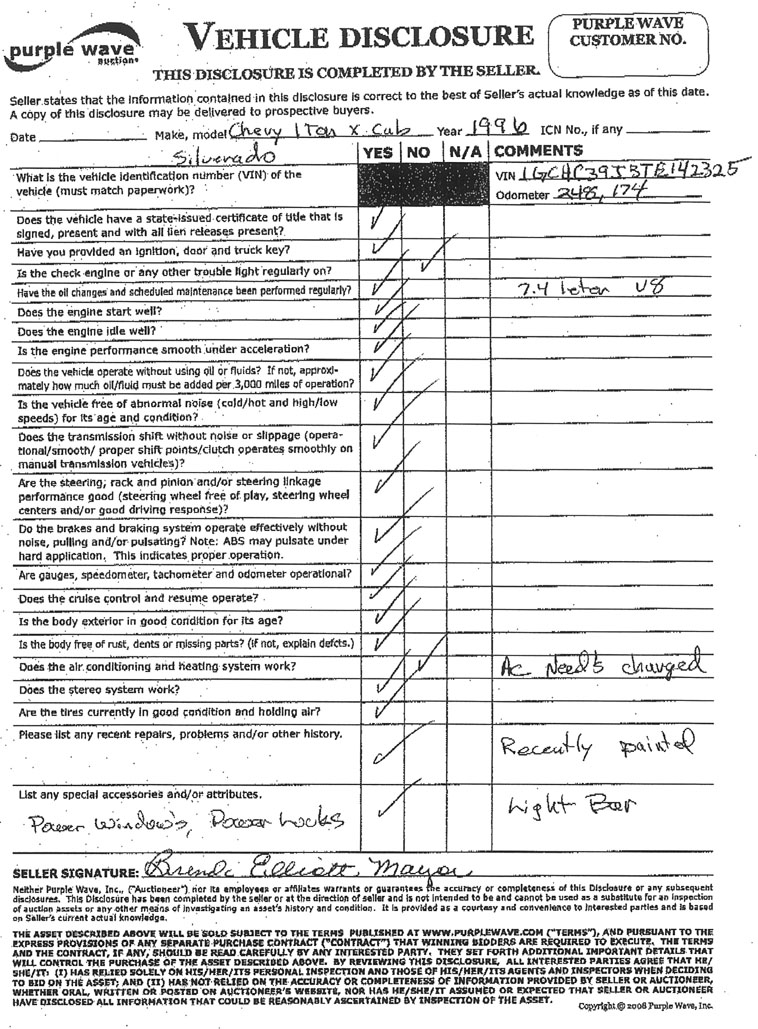 purple wave
auction
VEHICLE DISCLOSURE
PURPLE WAVE
CUSTOMER NO.
THIS DISCLOSURE IS COMPLETED BY THE SELLER.
Seller states that the information contained in this disclosure is correct to the best of Seller's actual knowledge as of this date.
A copy of this disclosure may be delivered to prospective buyers.
Date Make, model Chevy 1 Ton X Cab Year 1996 ICN No., if any
Silverado YES NO N/A COMMENTS
What is the vehicle identification number (VIN) of the
vehicle (must match paperwork)?
VIN 1GCHC39J3TE142325
Odometer 248,174
Does the vehicle have a state-issued certificate of title that is
signed, present and with all lien releases present? ✓
Have you provided an ignition, door and truck key? ✓
Is the check engine or any other trouble light regularly on? ✓
Have the oil changes and scheduled maintenance been performed regularly? ✓ 7.4 leter V8
Does the engine start well? ✓
Does the engine idle well? ✓
Is the engine performance smooth under acceleration? ✓
Does the vehicle operate without using oil or fluids? If not, approxi-
mately how much oil/fluid must be added per 3,000 miles of operation? ✓
Is the vehicle free of abnormal noise (cold/hot and high/low
speeds) for its age and condition? ✓
Does the transmission shift without noise or slippage (opera-
tional/smooth/ proper shift points/clutch operates smoothly on
manual transmission vehicles)? ✓
Are the steering, rack and pinion and/or steering linkage
performance good (steering wheel free of play, steering wheel
centers and/or good driving response)? ✓
Do the brakes and braking system operate effectively without
noise, pulling and/or pulsating? Note: ABS may pulsate under
hard application. This indicates proper operation. ✓
Are gauges, speedometer, tachometer and odometer operational? ✓
Does the cruise control and resume operate? ✓
Is the body exterior in good condition for its age? ✓
Is the body free of rust, dents or missing parts? (if not, explain defcts.) ✓
Does the air conditioning and heating system work? ✓ AC Need's charged
Does the stereo system work? ✓
Are the tires currently in good condition and holding air? ✓
Please list any recent repairs, problems and/or other history. ✓ Recently painted
List any special accessories and/or attributes. ✓ Light Bar
Power Window's, Power Locks
SELLER SIGNATURE: Brenda Elliott Mayor
Neither Purple Wave, Inc., ("Auctioneer") nor its employees or affiliates warrants or guarantees the accuracy or completeness of this Disclosure or any subsequent
disclosures. This Disclosure has been completed by the seller or at the direction of seller and is not intended to be and cannot be used as a substitute for an inspection
of auction assets or any other means of investigating an asset's history and condition. It is provided as a courtesy and convenience to interested parties and is based
on Seller's current actual knowledge.
THE ASSET DESCRIBED ABOVE WILL BE SOLD SUBJECT TO THE TERMS PUBLISHED AT WWW.PURPLEWAVE.COM ("TERMS"), AND PURSUANT TO THE
EXPRESS PROVISIONS OF ANY SEPARATE PURCHASE CONTRACT ("CONTRACT") THAT WINNING BIDDERS ARE REQUIRED TO EXECUTE. THE TERMS
AND THE CONTRACT, IF ANY, SHOULD BE READ CAREFULLY BY ANY INTERESTED PARTY. THEY SET FORTH ADDITIONAL IMPORTANT DETAILS THAT
WILL CONTROL THE PURCHASE OF THE ASSET DESCRIBED ABOVE. BY REVIEWING THIS DISCLOSURE, ALL INTERESTED PARTIES AGREE THAT HE/
SHE/IT: (I) HAS RELIED SOLELY ON HIS/HER/ITS PERSONAL INSPECTION AND THOSE OF HIS/HER/ITS AGENTS AND INSPECTORS WHEN DECIDING
TO BID ON THE ASSET; AND (II) HAS NOT RELIED ON THE ACCURACY OR COMPLETENESS OF INFORMATION PROVIDED BY SELLER OR AUCTIONEER,
WHETHER ORAL, WRITTEN OR POSTED ON AUCTIONEER'S WEBSITE, NOR HAS HE/SHE/IT ASSUMED OR EXPECTED THAT SELLER OR AUCTIONEER
HAVE DISCLOSED ALL INFORMATION THAT COULD BE REASONABLY ASCERTAINED BY INSPECTION OF THE ASSET.
Copyright © 2008 Purple Wave, Inc.